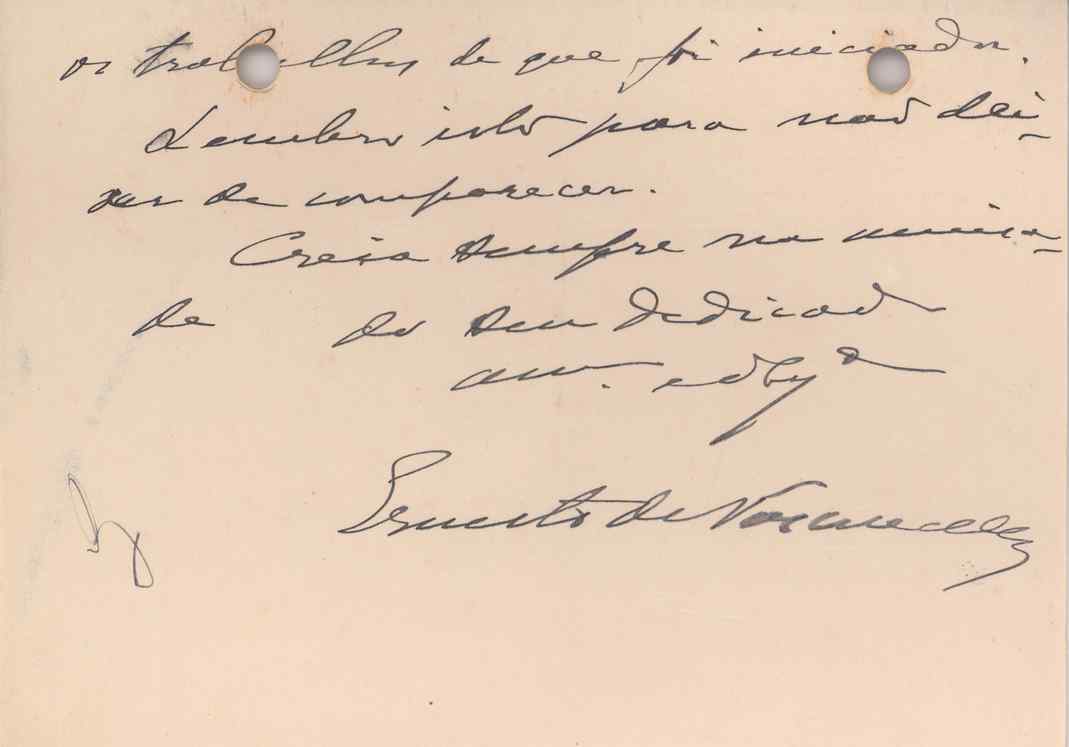 os trabalhos de que foi iniciador.
Lembro isto para não dei-
xar de comparecer.
Creia sempre na amisa-
de do seu dedicado
amº. e obgdo
Ernesto de Vasconcellos